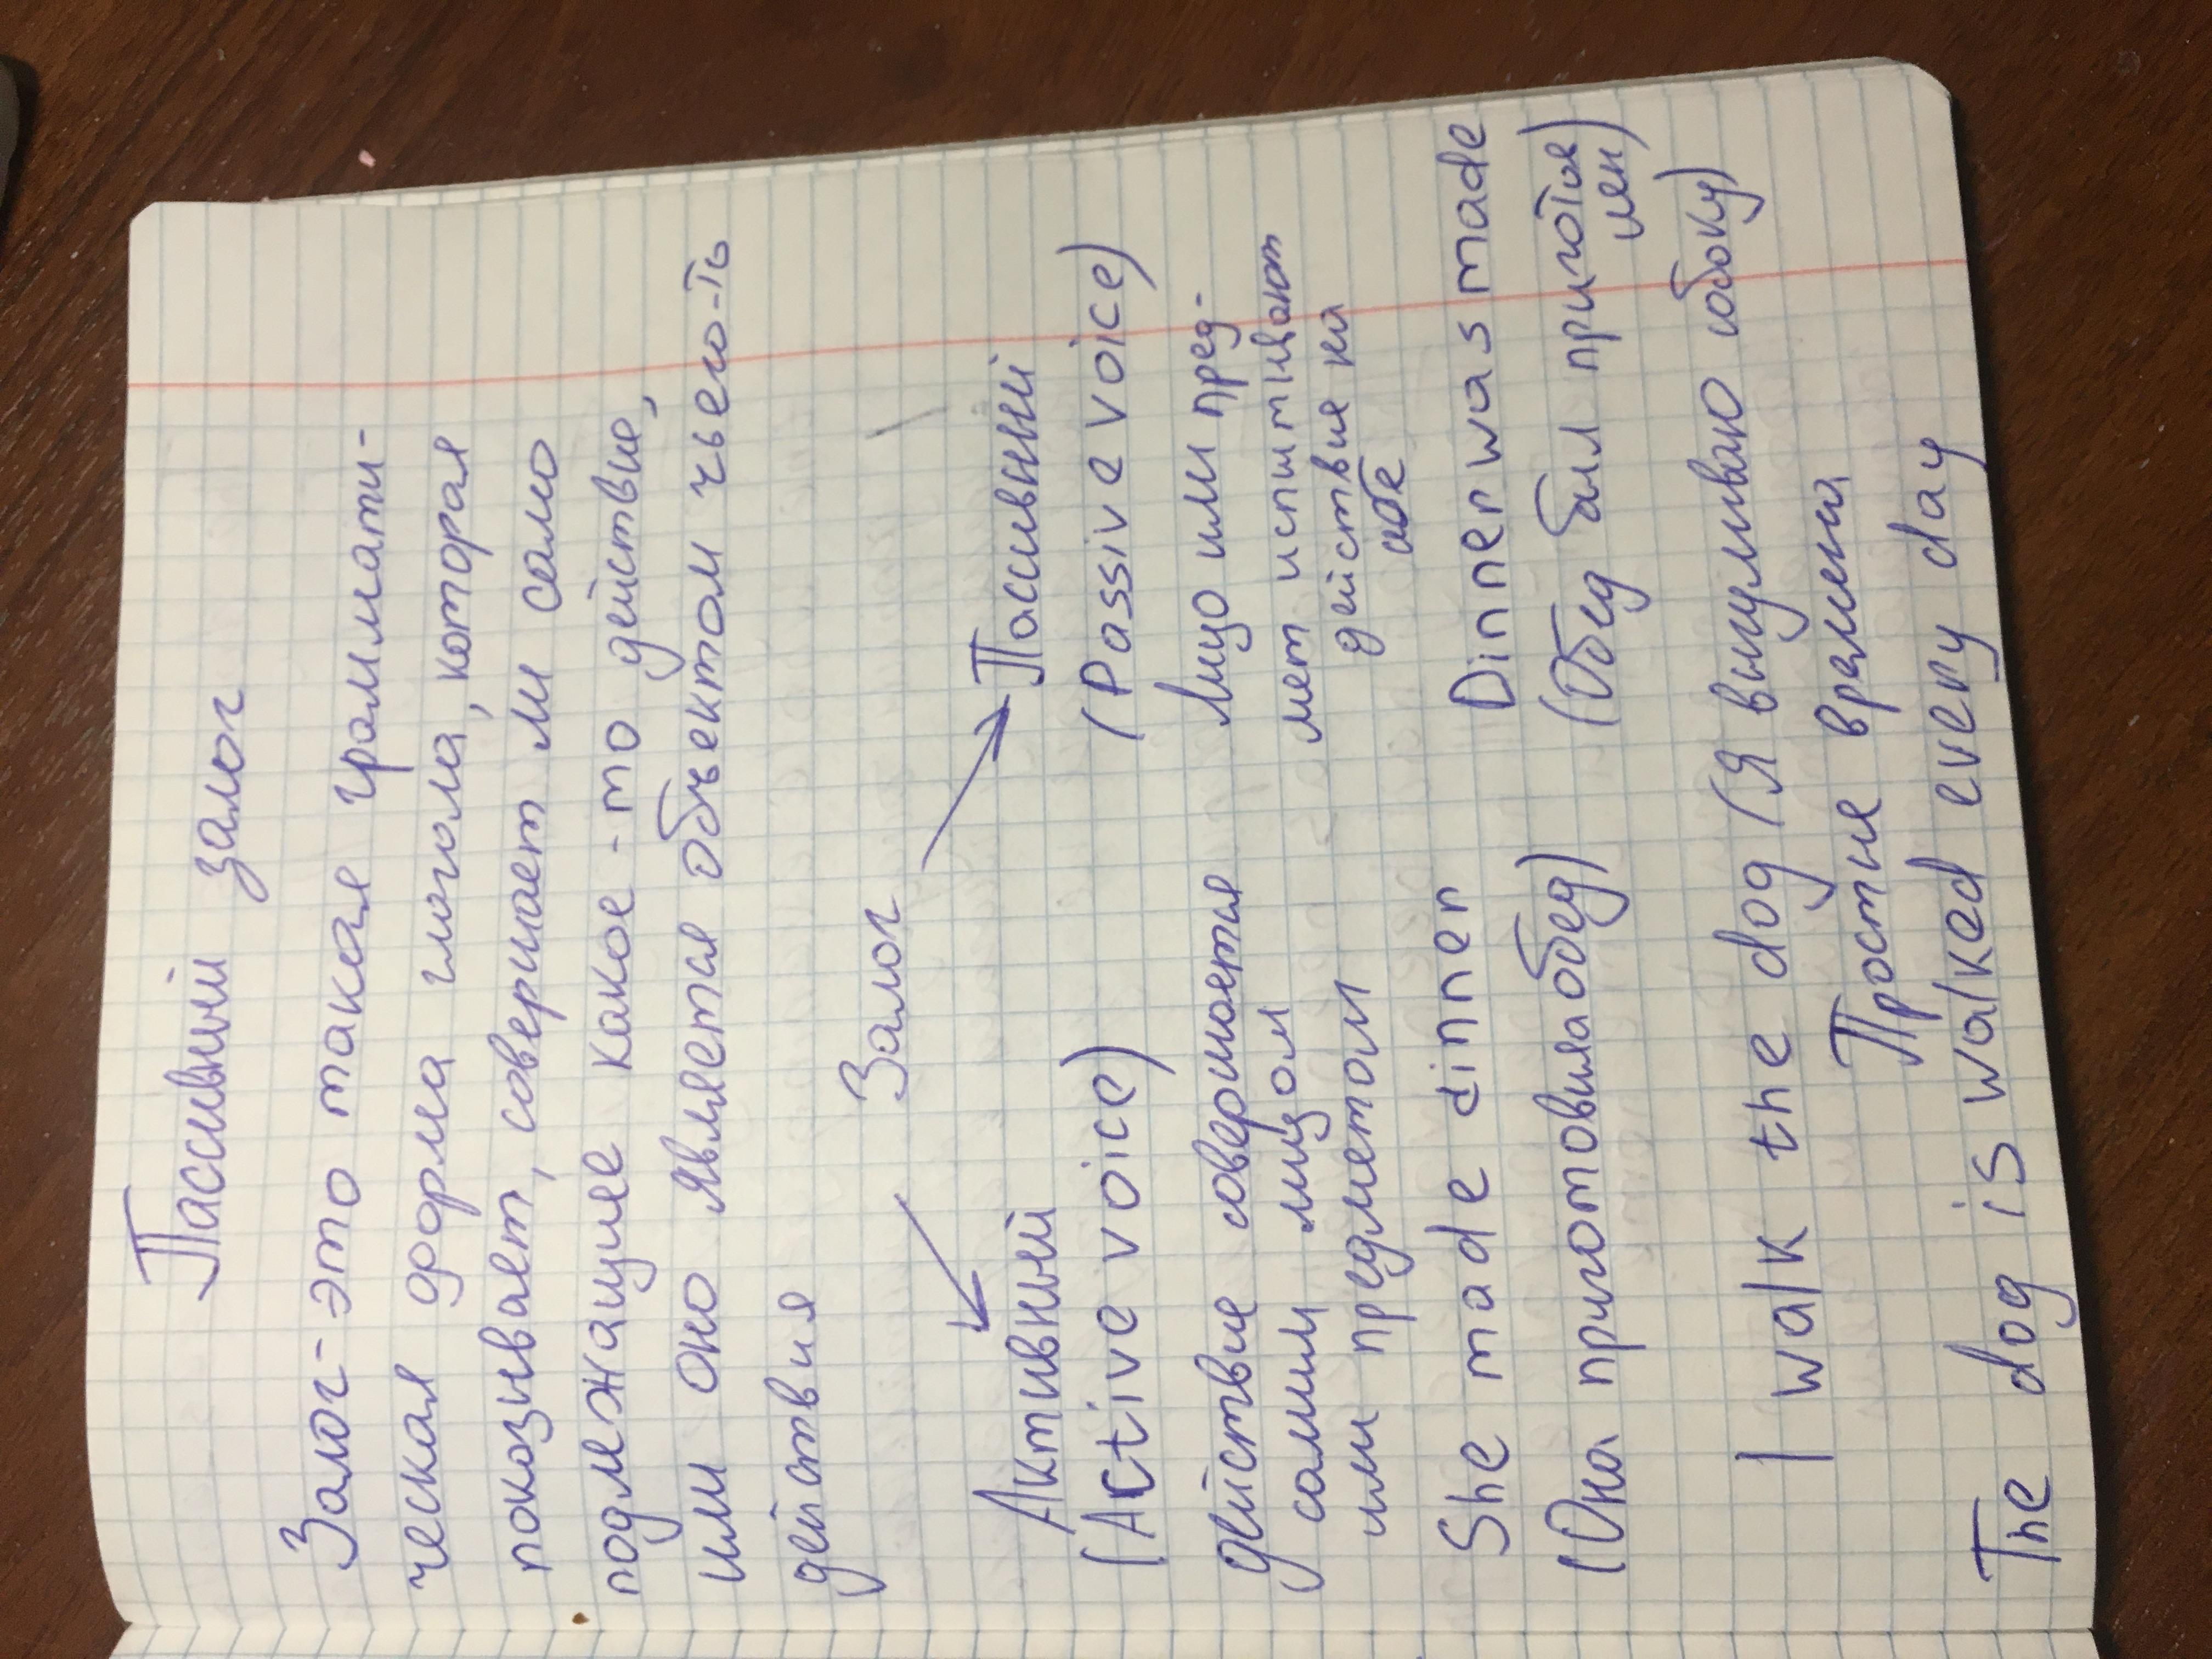 Пассивный залог
Залог-это такая граммати-
ческая форма глагола, которая
показывает, совершает ли само
подлежащее какое-то действие,
или оно является объектом чьего-то
действия
Залог
Активный
(Active voice)
действие совершается
самим лицом
или предметом
She made dinner
(Она приготовила обед)
Пассивный
(Passive voice)
Лицо или пред-
мет испытывают
действие на
себе
Dinner was made
(Обед был приготов
лен)
I walk the dog (Я выгуливаю собаку)
Простые времена
The dog is walked every day